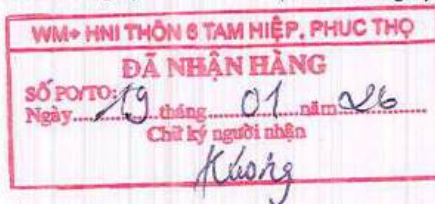 WM+ HNI THÔN 6 TAM HIỆP, PHUC THỌ
ĐÃ NHẬN HÀNG
SỐ PO/TO:
Ngày 19 tháng 01 năm 26
Chữ ký người nhận